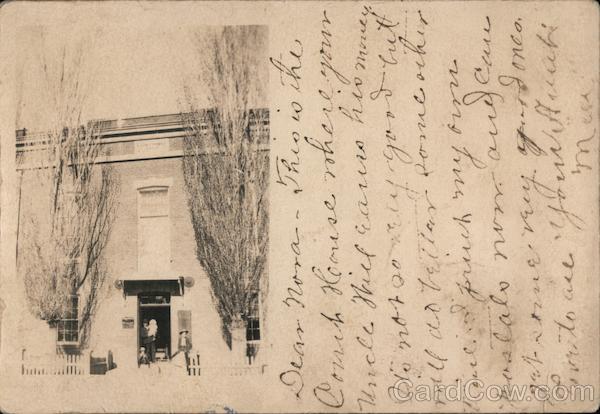 Dear Nora - This is the
Court House where your
Uncle Will earns his money
is not so very good but
will do better some other
time. I print my own
Postals now and can
get some very good ones.
Love to all Your Aunt
May
CardCow.com